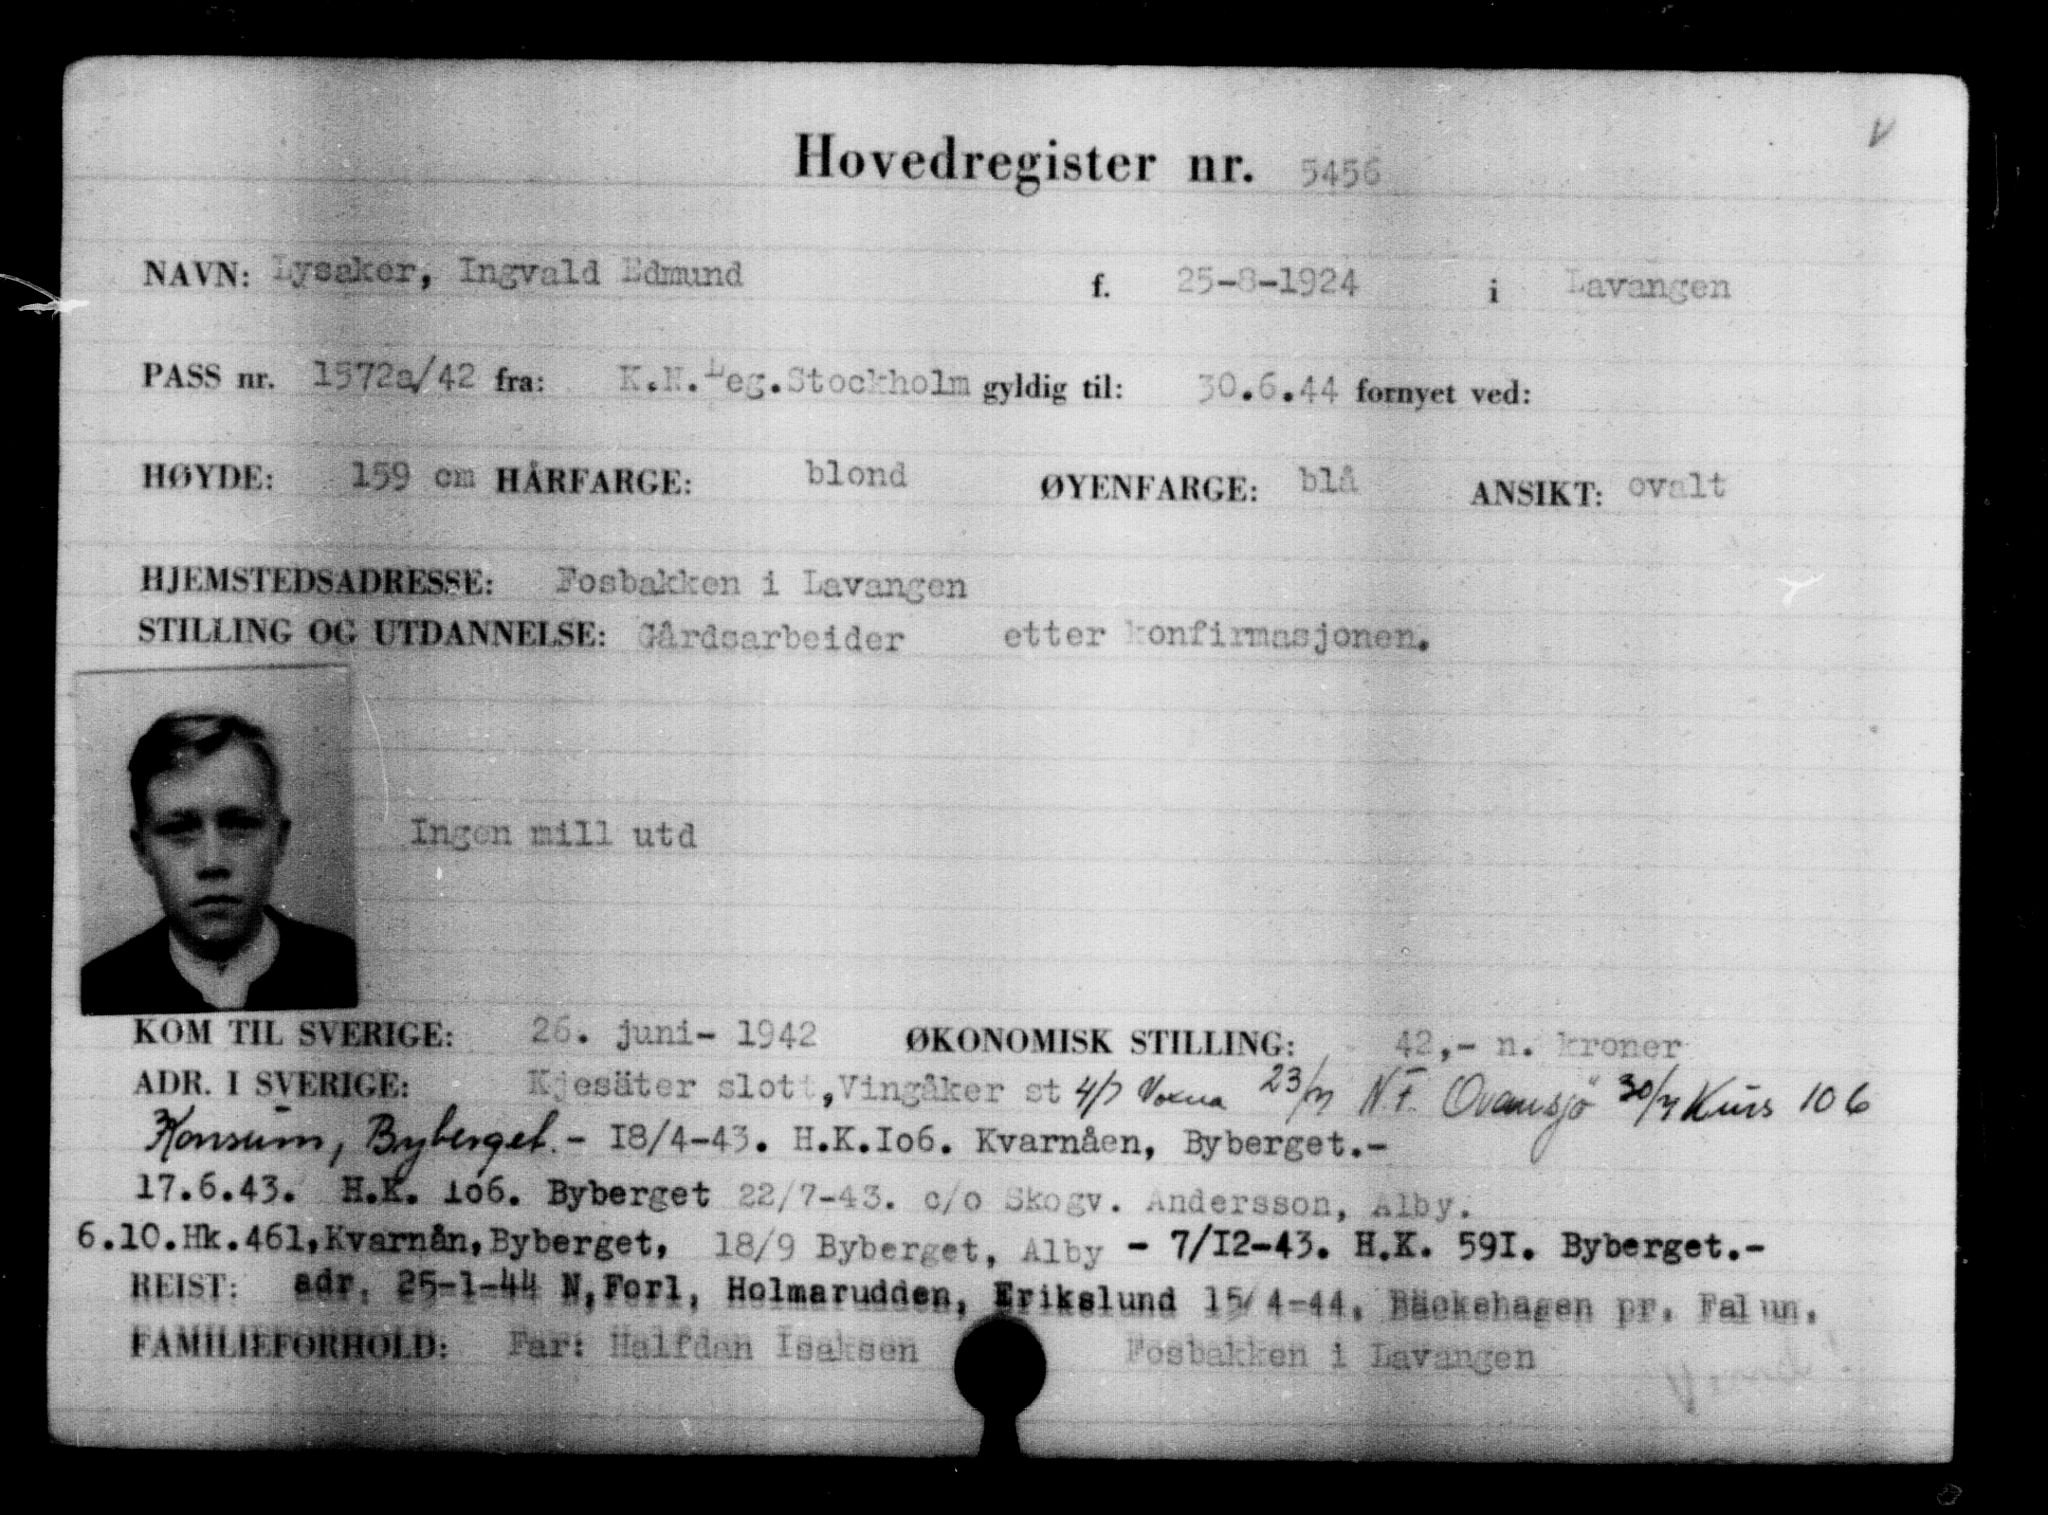 Hovedregister nr. 5456
NAVN: Lysaker, Ingvald Edmund f. 25-8-1924 i Lavangen
PASS nr. 1572a/42 fra: K.N.Leg.Stockholm gyldig til: 30.6.44 fornyet ved:
HØYDE: 159 cm HÅRFARGE: blond ØYENFARGE: blå ANSIKT: ovalt
HJEMSTEDSADRESSE: Fosbakken i Lavangen
STILLING OG UTDANNELSE: Gårdsarbeider etter konfirmasjonen.
Ingen mill utd
KOM TIL SVERIGE: 26. juni- 1942 ØKONOMISK STILLING: 42,- n. kroner
ADR. I SVERIGE: Kjesäter slott, Vingåker st 4/7 Voxna 23/7 N.F. Ovansjö 30/7 Kurs 106
Konsum, Byberget.- 18/4-43. H.K.1o6. Kvarnåen, Byberget.-
17.6.43. H.K. 1o6. Byberget 22/7-43. c/o Skogv. Andersson, Alby.
6.10.Hk.461,Kvarnån,Byberget, 18/9 Byberget, Alby - 7/12-43. H.K. 591. Byberget.-
REIST: adr. 25-1-44 N,Forl, Holmarudden, Erikslund 15/4-44. Bäckehagen pr. Falun.
FAMILIEFORHOLD: Far: Halfdan Isaksen Fosbakken i Lavangen